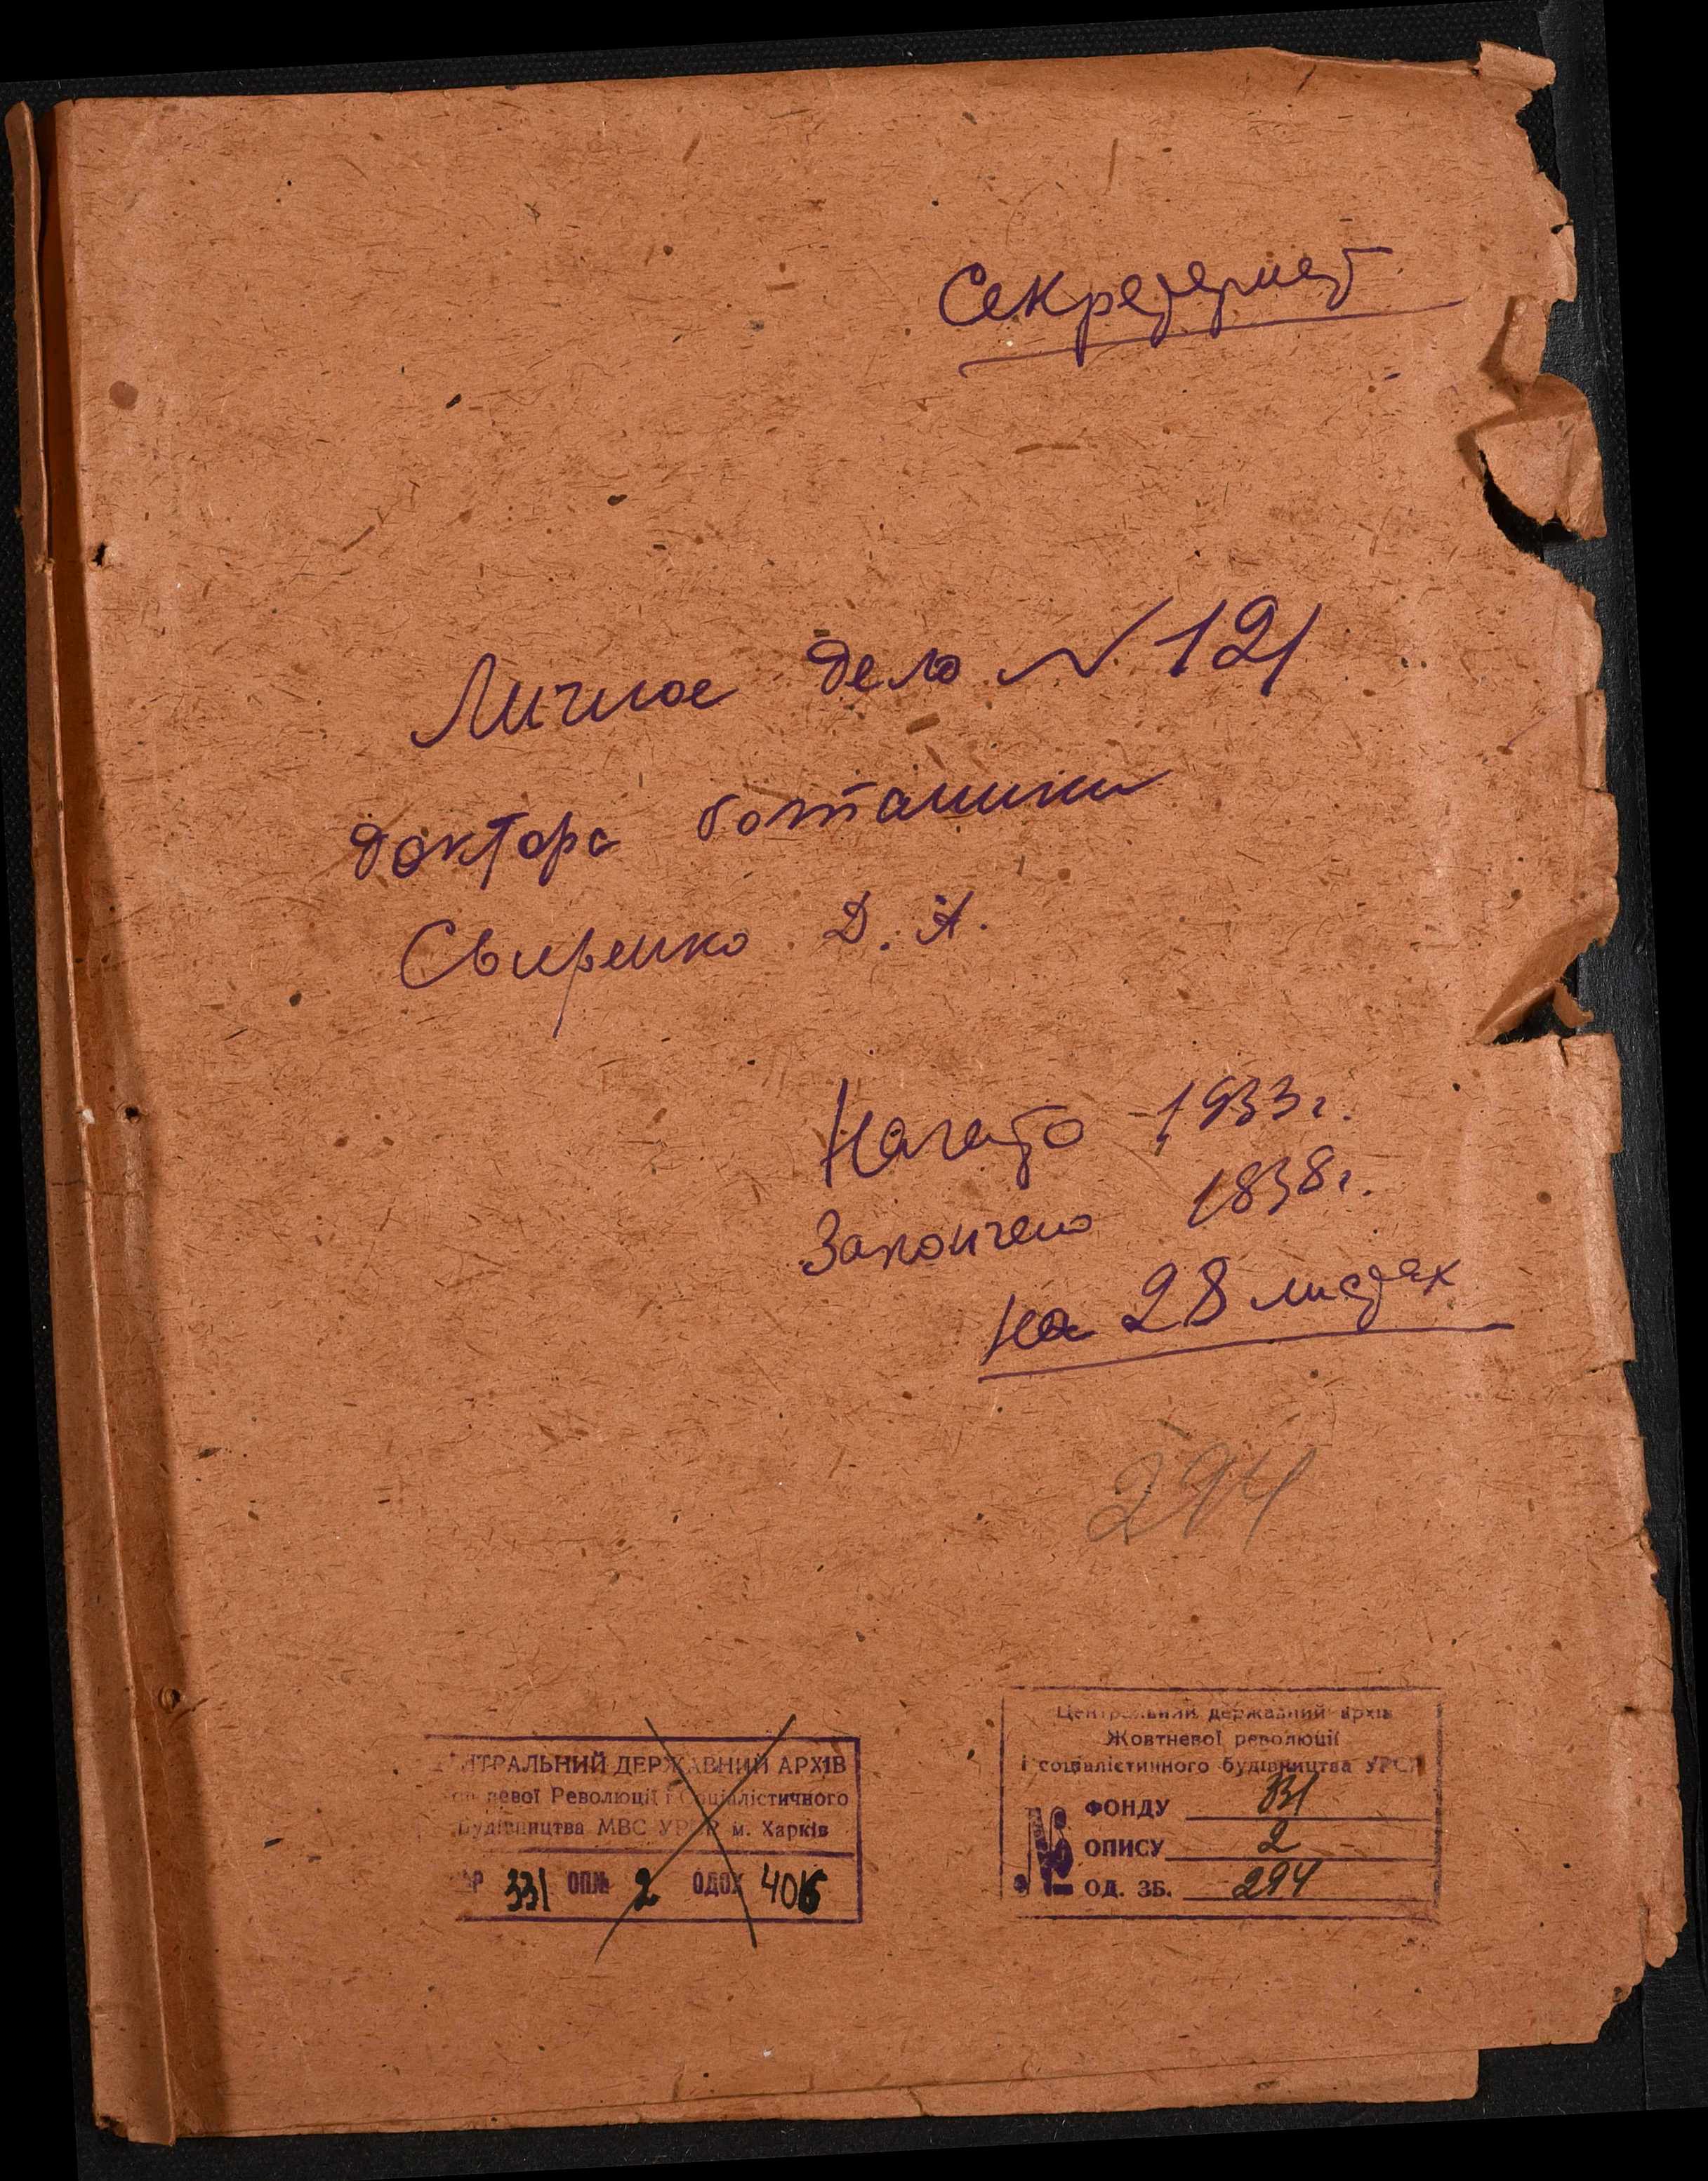 Секретариат
Личное дело № 121
доктора ботаники
Свиренко Д. А.
Начато 1933 г.
Закончено 1838 г.
на 28 листах
294
НТРАЛЬНИЙ ДЕРЖАВНИЙ АРХІВ
невої Революції і Соціалістичного
Будівництва МВС УРСР м. Харків
Р 331 ОП№ 2 ОДОХ
Центральний державний архів
Жовтневої революції
і соціалістичного будівництва УРСР
№ ФОНДУ 331
ОПИСУ 2
ОД. ЗБ. 294